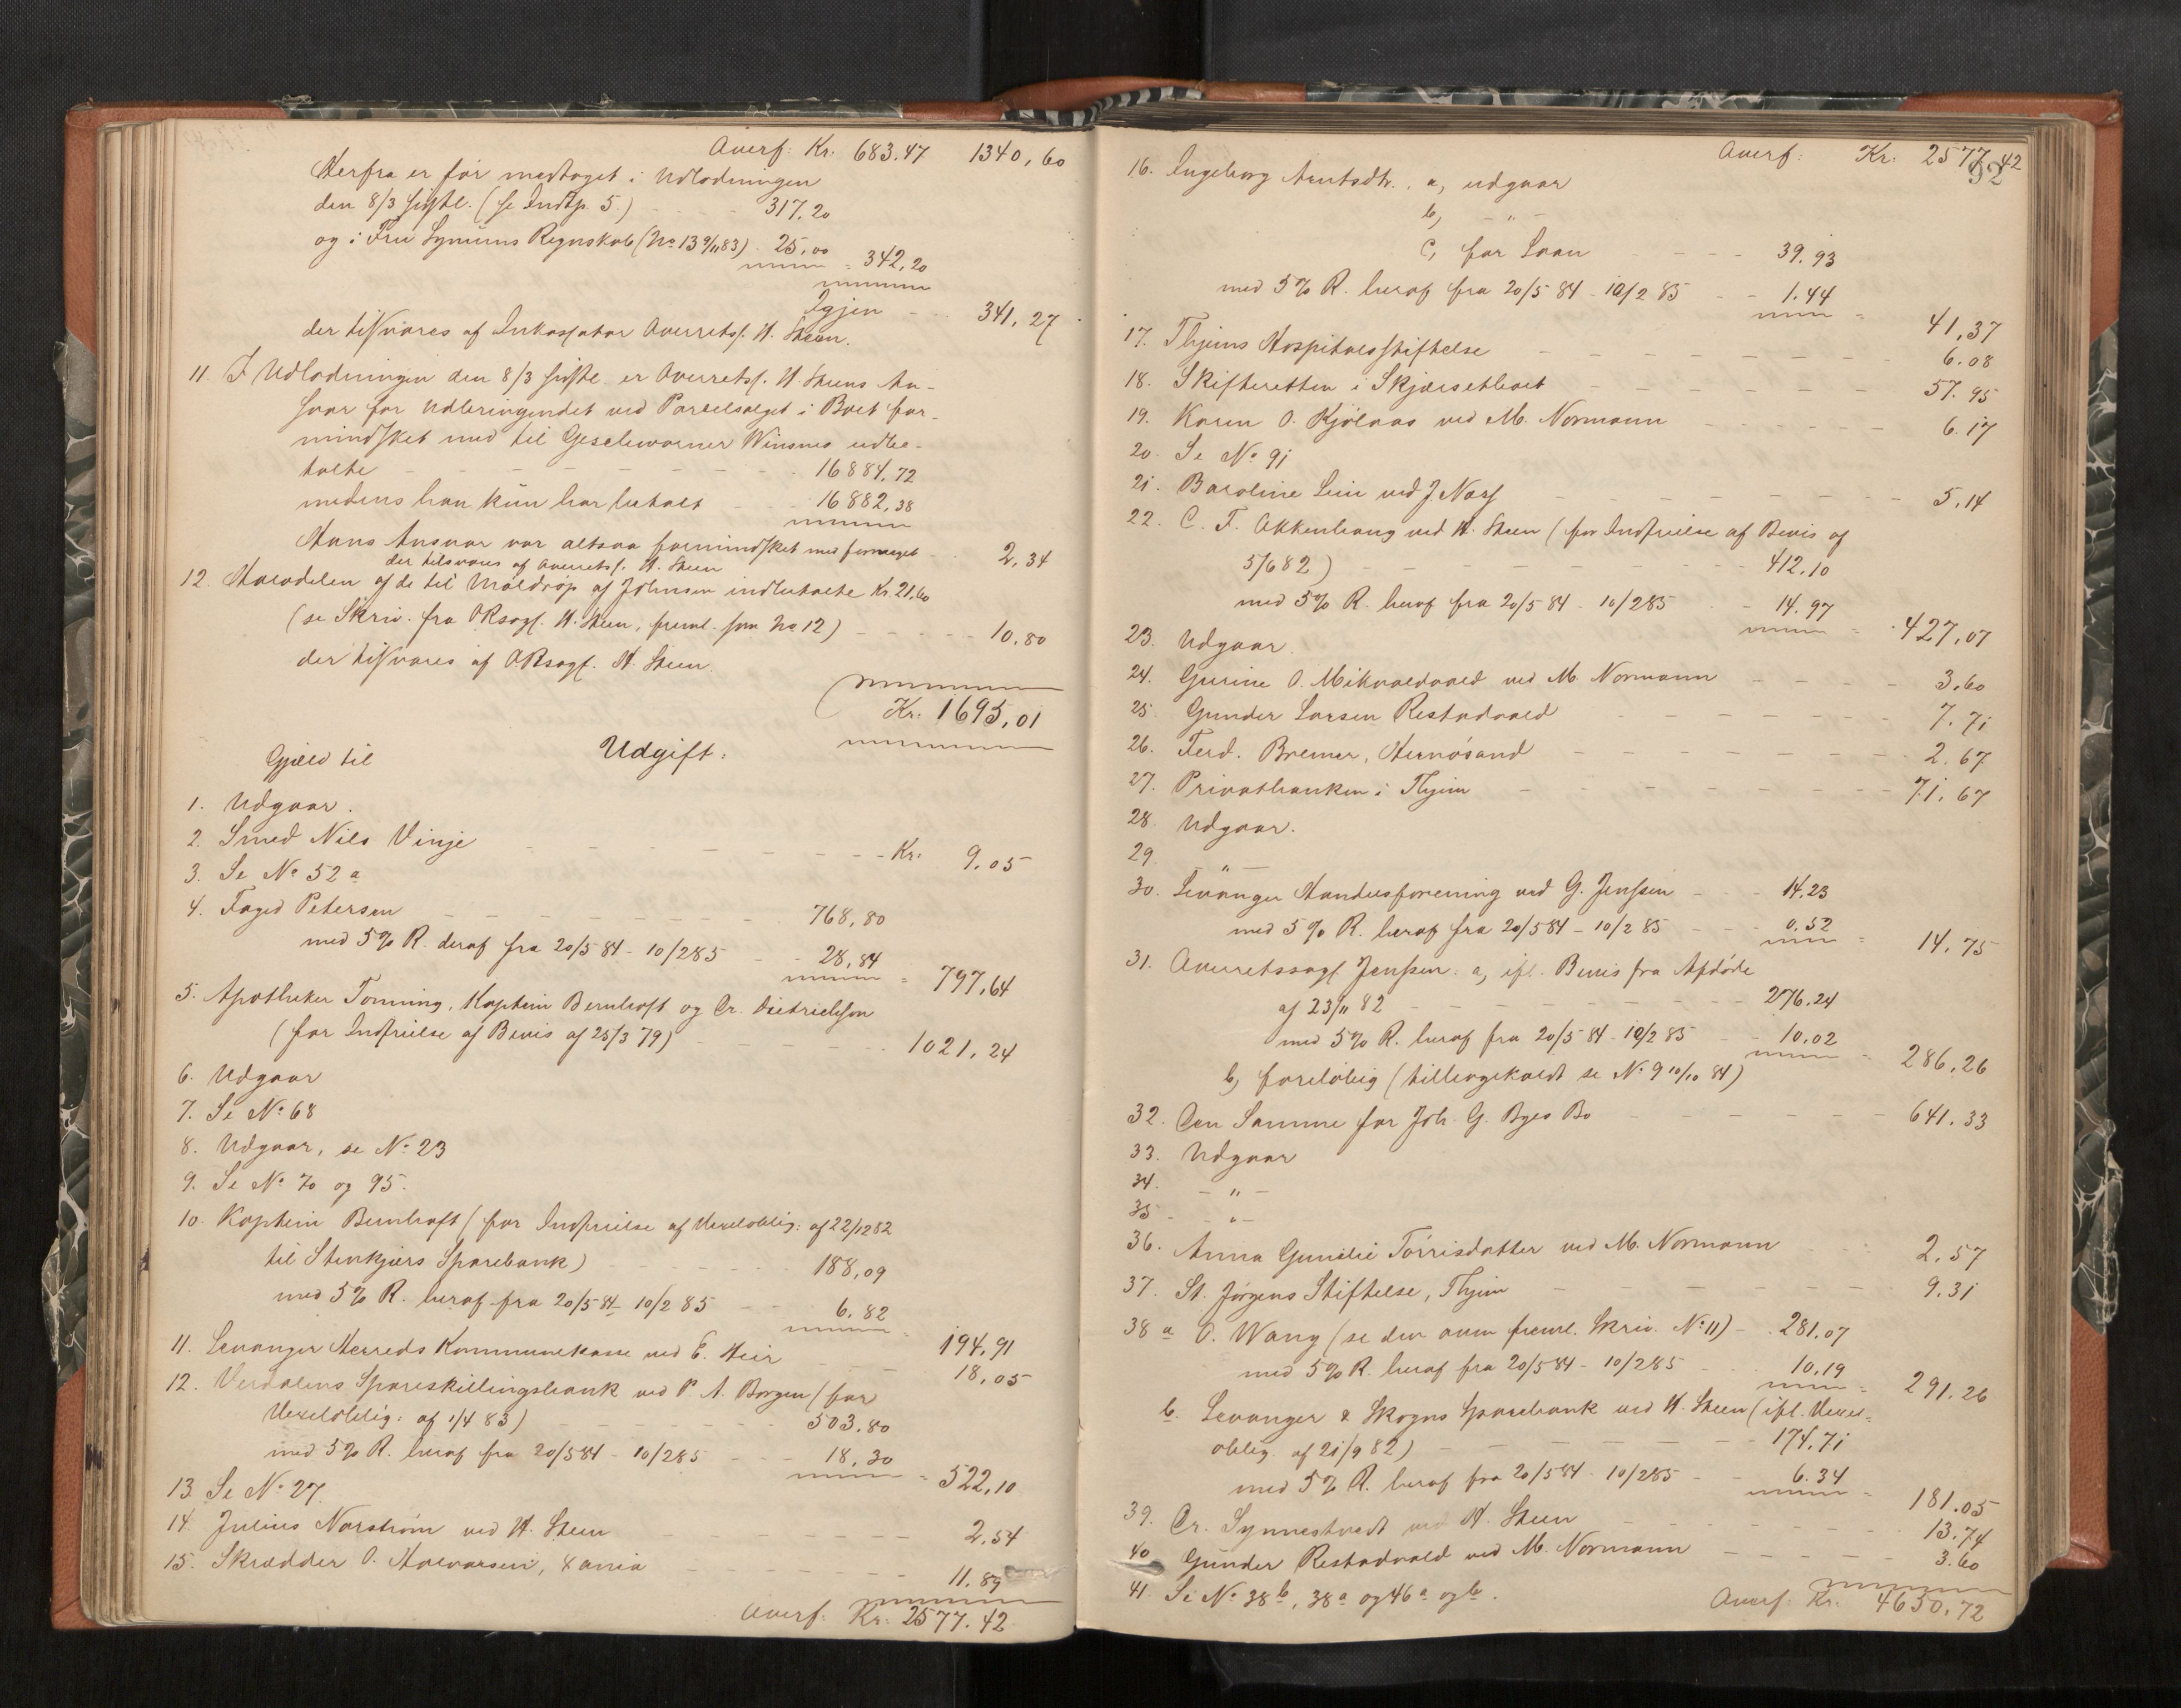 Overf: Kr. 683.47 1340,60
Herfra er før medtaget i Udlodningen
den 8/3 sidstl. (se Indtp. 5.) 317,20
og i Fru Lynums Regnskab (No 13 9/11 83) 25,00 = 342,20
Igjen 341,27
der tilsvares af Inkassator Overretss. H. Steen.
11. I Udlodningen den 8/3 sidstl. er Overretss. H. Steens An-
svar for Udbringendet ved Parcelsalget i Boet for-
mindsket med til Gjeseleværner Winsnes udbe-
talte 16884,72
medens han kun har betalt 16882,38
Hans Ansvar var altsaa formindsket med formeget 2,34
der tilsvares af Overretss. H. Steen
12. Halvdelen af de til Møldrop af Johnsen indbetalte Kr. 21,60
(se Skriv. fra ORsagf. H. Steen, freml. som No 12) 10,80
der tilsvares af ORsagf. H. Steen.
Kr. 1695,01
Udgift:
Gjæld til
1. Udgaar.
2. Smed Nils Vinje Kr. 9.05
3. Se No 52 a
4. Foged Petersen 768,80
med 5% R. deraf fra 20/5 84 - 10/2 85 28,84 = 797,64
5. Apotheker Tonning, Kaptein Bernhoft og Dr. Dietrichson
(for Indfrielse af Bevis af 25/3 79) 1021,24
6. Udgaar
7. Se No 68
8. Udgaar, se No 23
9. Se No 70 og 95.
10. Kaptein Bernhoft (for Indfrielse af Vexeloblig: af 22/12 82
til Stenkjærs Sparebank) 188,09
med 5% R. heraf fra 20/5 84 - 10/2 85 6.82 = 194,91
11. Levanger Herreds Kommunekasse ved E. Heir 18,05
12. Verdalens Spareskillingsbank ved P. A. Borgen (for
Vexeloblig: af 1/4 83) 503.80
med 5% R. heraf fra 20/5 84 - 10/2 85 18,30 = 522,10
13. Se No 27.
14. Julius Norstrøm ved H. Steen 2,54
15. Skrædder O. Halvorsen, Xania 11.89
Overf. Kr: 2577.42
92
Overf: Kr: 2577,42
16. Ingeborg Arntsdtr. a, udgaar
b, - " -
c, for Laan 39.93
med 5% R. heraf fra 20/5 84 - 10/2 85 1.44 = 41,37
17. Thjems Hospitalsstiftelse 6.08
18. Skifteretten i Skjørsetboet 57.95
19. Karen O. Kjølaas ved M. Normann 6.17
20. Se No 91
21. Baroline Lein ved J. Næss 5,14
22. C. F. Akkenhaug ved H. Steen (for Indfrielse af Bevis af
5/6 82) 412.10
med 5% R. heraf fra 20/5 84 - 10/2 85 14.97 = 427,07
23. Udgaar.
24. Gurine O. Mikvoldvald ved M. Normann 3,60
25. Gunder Larsen Restadvald 7.71
26. Ferd. Bremer, Hernøsand 2.67
27. Privatbanken i Thjem 71,67
28. Udgaar.
29. - " -
30. Levanger Handelsforening ved G. Jenssen 14.23
med 5% R. heraf fra 20/5 84 - 10/2 85 0.52 = 14.75
31. Overretssagf. Jenssen: a, ifl. Bevis fra Afdøde
af 23/11 82 276.24
med 5% R. heraf fra 20/5 84 - 10/2 85 10.02 = 286,26
b, foreløbig (tilbagekaldt se No 9 10/10 84)
32. Den Samme for Joh. G. Byes Bo 641.33
33. Udgaar
34. - " -
35 - " -
36. Anna Gunilie Torrisdatter ved M. Normann 2.57
37. St. Jørgens Stiftelse, Thjem 9.31
38 a O. Wang (se den oven freml. Skriv. No 11) 281.07
med 5% R. heraf fra 20/5 84 - 10/2 85 10,19 = 291.26
b. Levanger & Skogns Sparebank ved H. Steen (ifl. Vexel-
oblig. af 21/9 82) 174.71
med 5% R. heraf fra 20/5 84 - 10/2 85 6.34 = 181.05
39. Dr. Synnestvedt ved H. Steen 13.74
40 Gunder Restadvald ved M. Normann 3.60
41. Se No 38 b, 38 a og 46 a og b.
Overf. Kr. 4650,72